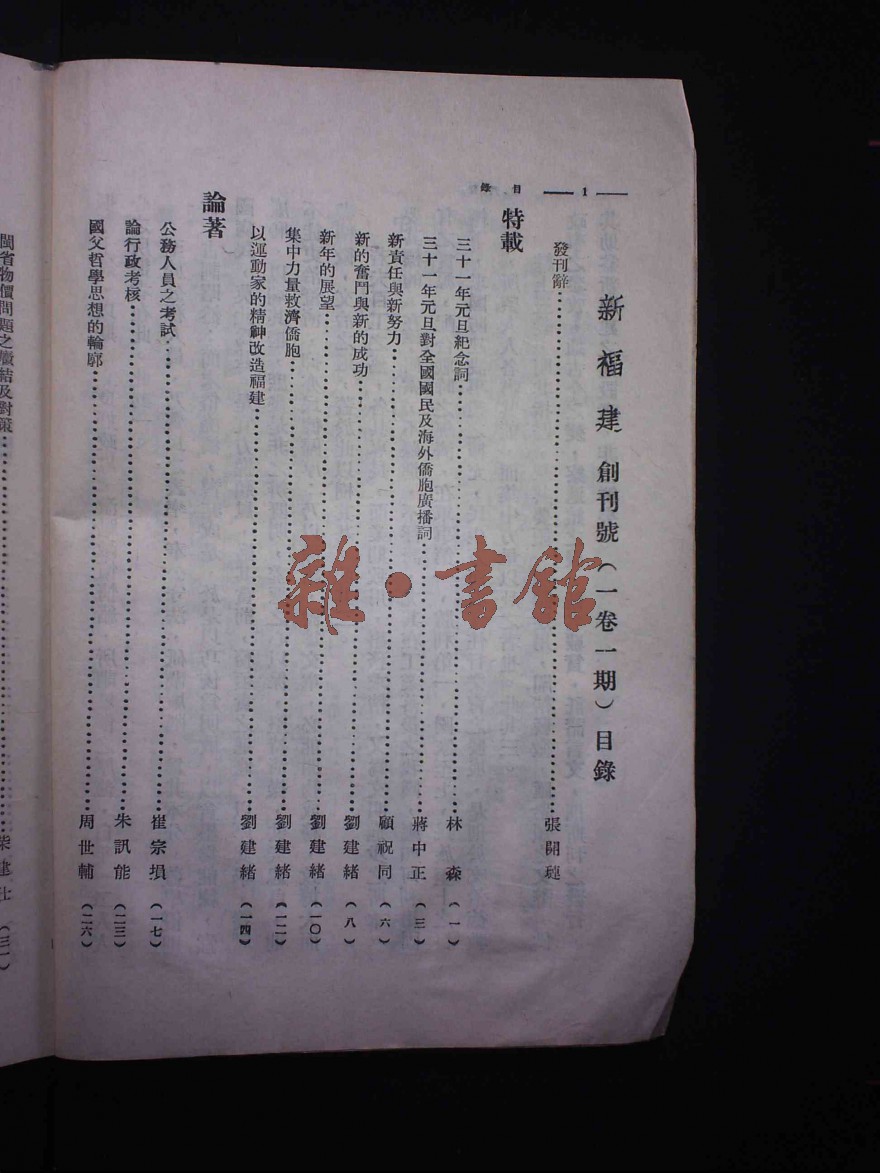 目錄
1
新福建創刊號（一卷一期）目錄
發刊辭 張開璉
特載
三十一年元旦紀念詞 林森（一）
三十一年元旦對全國國民及海外僑胞廣播詞 蔣中正（三）
新責任與新努力 顧祝同（六）
新的奮鬥與新的成功 劉建緒（八）
新年的展望 劉建緒（一〇）
集中力量救濟僑胞 劉建緒（一二）
以運動家的精神改造福建 劉建緒（一四）
論著
公務人員之考試 崔宗塤（一七）
論行政考核 朱訊能（二三）
國父哲學思想的輪廓 周世輔（二六）
閩省物價問題之癥結及對策（三一）
雜·書館